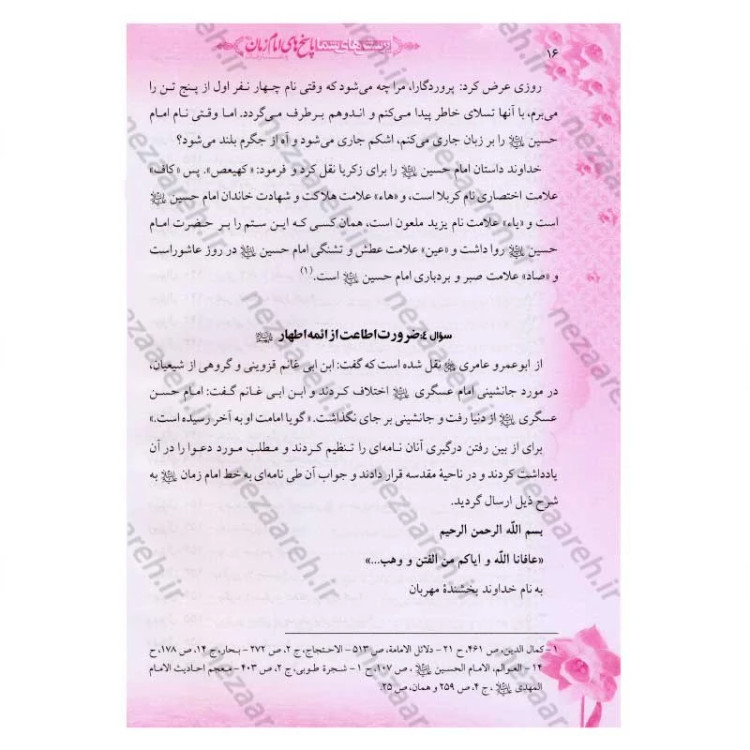 پرسش‌های شما پاسخ‌های امام زمان
۱۶
روزی عرض کرد: پروردگارا، مرا چه می‌شود که وقتی نام چهار نفر اول از پنج تن را
می‌برم، با آنها تسلای خاطر پیدا می‌کنم و اندوهم برطرف می‌گردد. اما وقتی نام امام
حسین علیه السلام را بر زبان جاری می‌کنم، اشکم جاری می‌شود و آه از جگرم بلند می‌شود؟
خداوند داستان امام حسین علیه السلام را برای زکریا نقل کرد و فرمود: «کهیعص». پس «کاف»
علامت اختصاری نام کربلا است، و «هاء» علامت هلاکت و شهادت خاندان امام حسین علیه السلام
است و «یاء» علامت نام یزید ملعون است، همان کسی که این ستم را بر حضرت امام
حسین علیه السلام روا داشت و «عین» علامت عطش و تشنگی امام حسین علیه السلام در روز عاشوراست
و «صاد» علامت صبر و بردباری امام حسین علیه السلام است. (۱)
سؤال ٤: ضرورت اطاعت از ائمه اطهار علیهم السلام
از ابوعمرو عامری علیه السلام نقل شده است که گفت: ابن ابی غانم قزوینی و گروهی از شیعیان،
در مورد جانشینی امام عسکری علیه السلام اختلاف کردند و ابن ابی غانم گفت: امام حسن
عسکری علیه السلام از دنیا رفت و جانشینی بر جای نگذاشت. «گویا امامت او به آخر رسیده است.»
برای از بین رفتن درگیری آنان نامه‌ای را تنظیم کردند و مطلب مورد دعوا را در آن
یادداشت کردند و در ناحیهٔ مقدسه قرار دادند و جواب آن طی نامه‌ای به خط امام زمان علیه السلام به
شرح ذیل ارسال گردید.
بسم الله الرحمن الرحیم
«عافانا الله و ایاکم من الفتن و وهب...»
به نام خداوند بخشندهٔ مهربان
۱- کمال الدین، ص ۴۶۱، ح ۲۱ - دلائل الامامة، ص ۵۱۳ - الاحتجاج، ج ۲، ص ۲۷۲ - بحار، ج ۱۴، ص ۱۷۸، ح
۱۴ - العوالم، الامام الحسین علیه السلام، ص ۱۰۷، ح ۱ - شجرة طوبی، ج ۲، ص ۴۰۳ - معجم احادیث الامام
المهدی علیه السلام، ج ۴، ص ۲۵۹ و همان، ص ۲۵.
nezaareh.ir